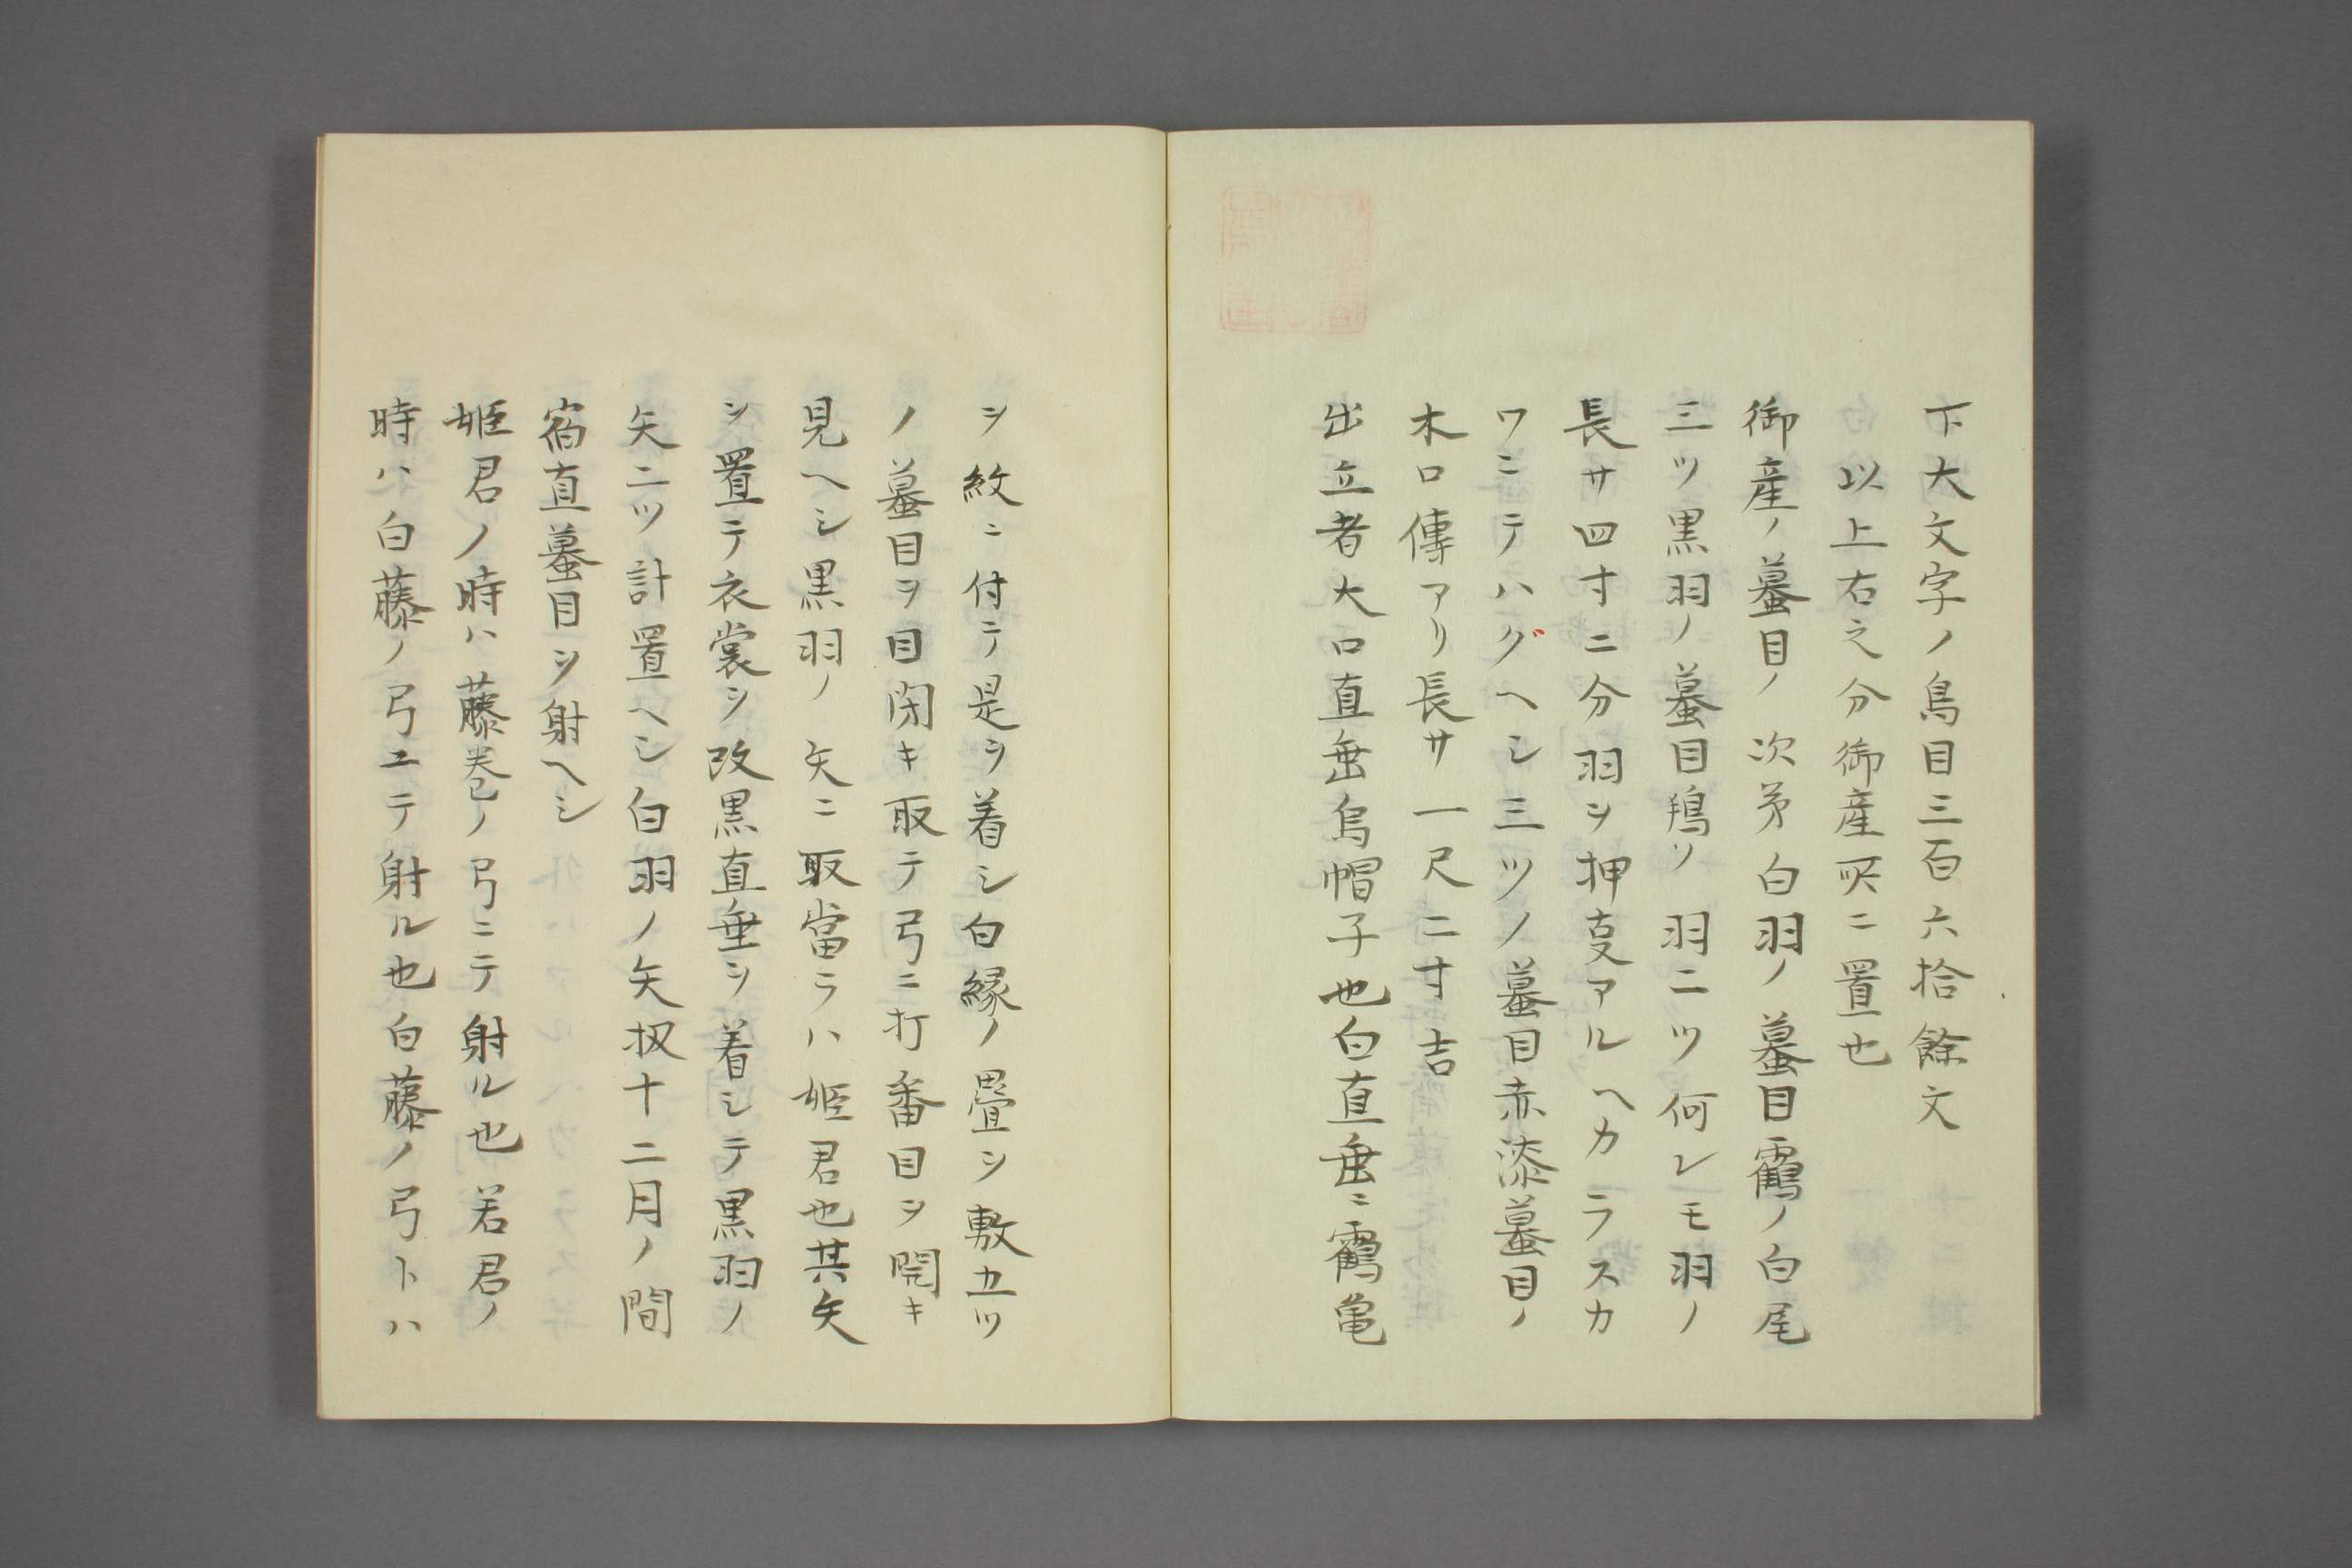 下大文字ノ鳥目三百六拾餘文
以上右之分御産所ニ置也
御産ノ蟇目ノ次第白羽ノ蟇目鸖ノ白尾
三ツ黒羽ノ蟇目鴘ソ羽二ツ何レモ羽ノ
長サ四寸二分羽ヲ押支アルヘカラスカ
ワニテハグヘシ三ツノ蟇目赤漆蟇目ノ
木口傳アリ長サ一尺二寸吉
出立者大口直垂烏帽子也白直垂ニ鸖亀
ヲ紋ニ付テ是ヲ着シ白縁ノ畳ヲ敷立ツ
ノ蟇目ヲ目閉キ取テ弓ニ打番目ヲ開キ
見ヘシ黒羽ノ矢ニ取當ラハ姫君也其矢
ヲ置テ衣裳ヲ改黒直垂ヲ着シテ黒羽ノ
矢二ツ計置ヘシ白羽ノ矢扨十二月ノ間
宿直蟇目ヲ射ヘシ
姫君ノ時ハ藤巻ノ弓ニテ射ル也若君ノ
時ハ白藤ノ弓ニテ射ル也白藤ノ弓トハ